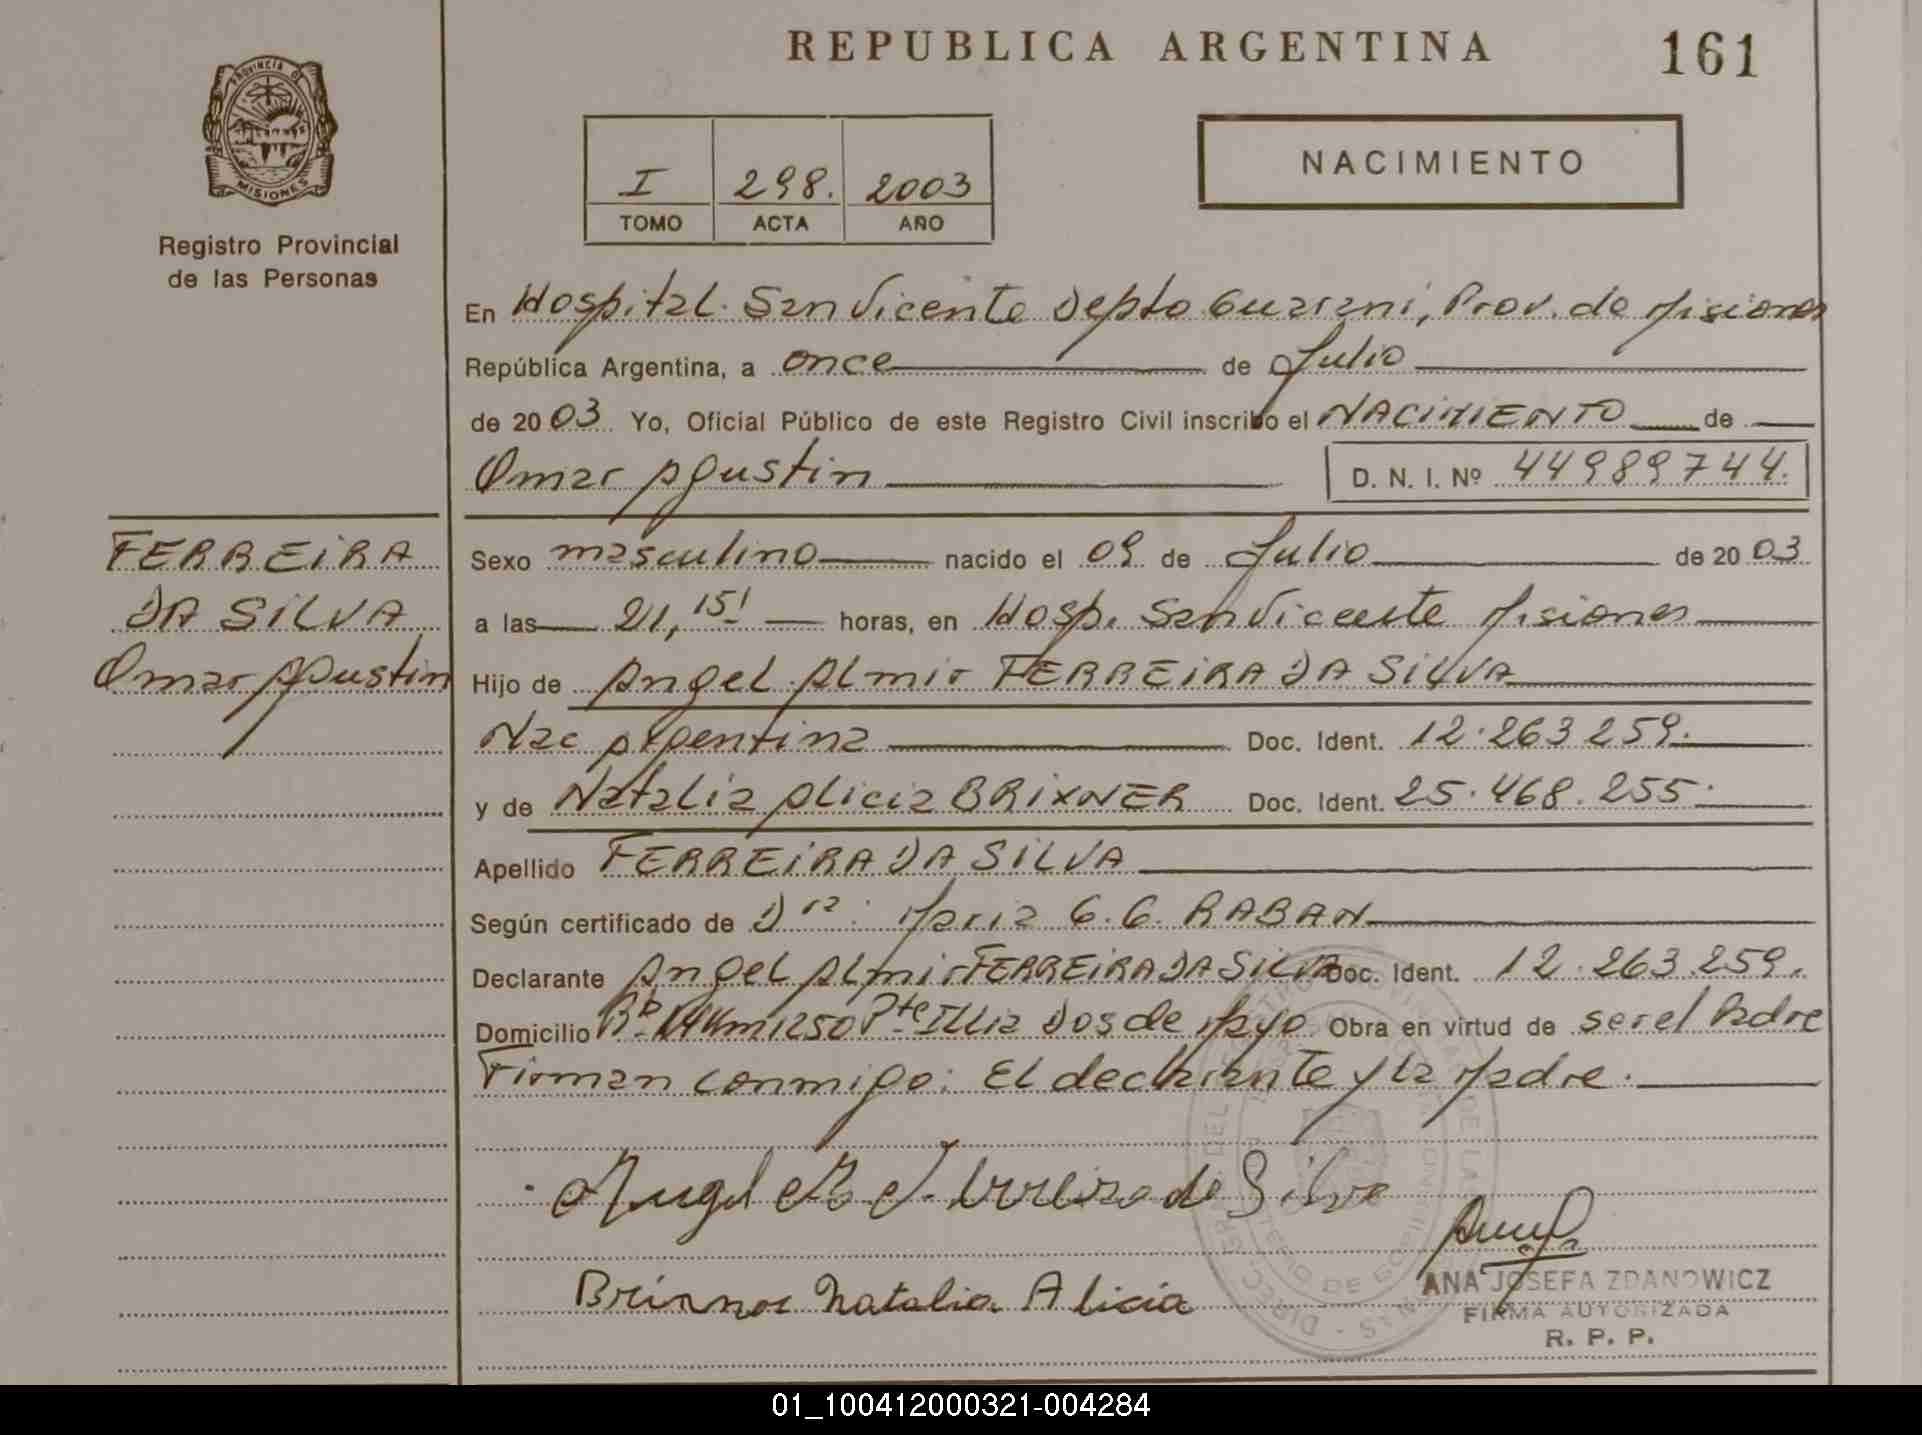 REPUBLICA ARGENTINA
161
PROVINCIA DE
MISIONES
Registro Provincial
de las Personas
I 298. 2003
TOMO ACTA AÑO
NACIMIENTO
En Hospital San Vicente Depto Guarani, Prov. de Misiones
República Argentina, a once de Julio
de 2003 Yo, Oficial Público de este Registro Civil inscribo el NACIMIENTO de
Omar Agustin D. N. I. Nº 44989744.
FERREIRA
DA SILVA
Omar Agustin
Sexo masculino nacido el 09 de Julio de 2003
a las 21,15' horas, en Hosp. San Vicente Misiones
Hijo de Angel Almir FERREIRA DA SILVA
Nac Argentina Doc. Ident. 12.263.259.
y de Natalia Alicia BRIXNER Doc. Ident. 25.468.255.
Apellido FERREIRA DA SILVA
Según certificado de Dra: Maria G.G. RABAN
Declarante Angel Almir FERREIRA DA SILVA Doc. Ident. 12.263.259.
Domicilio Km 1250 Pte Illia Dos de Mayo Obra en virtud de ser el Padre
Firman conmigo: El declarante y la Madre.
Angel Ferreira da Silva
Brixner Natalia Alicia
ANA JOSEFA ZDANOWICZ
FIRMA AUTORIZADA
R. P. P.
01_100412000321-004284